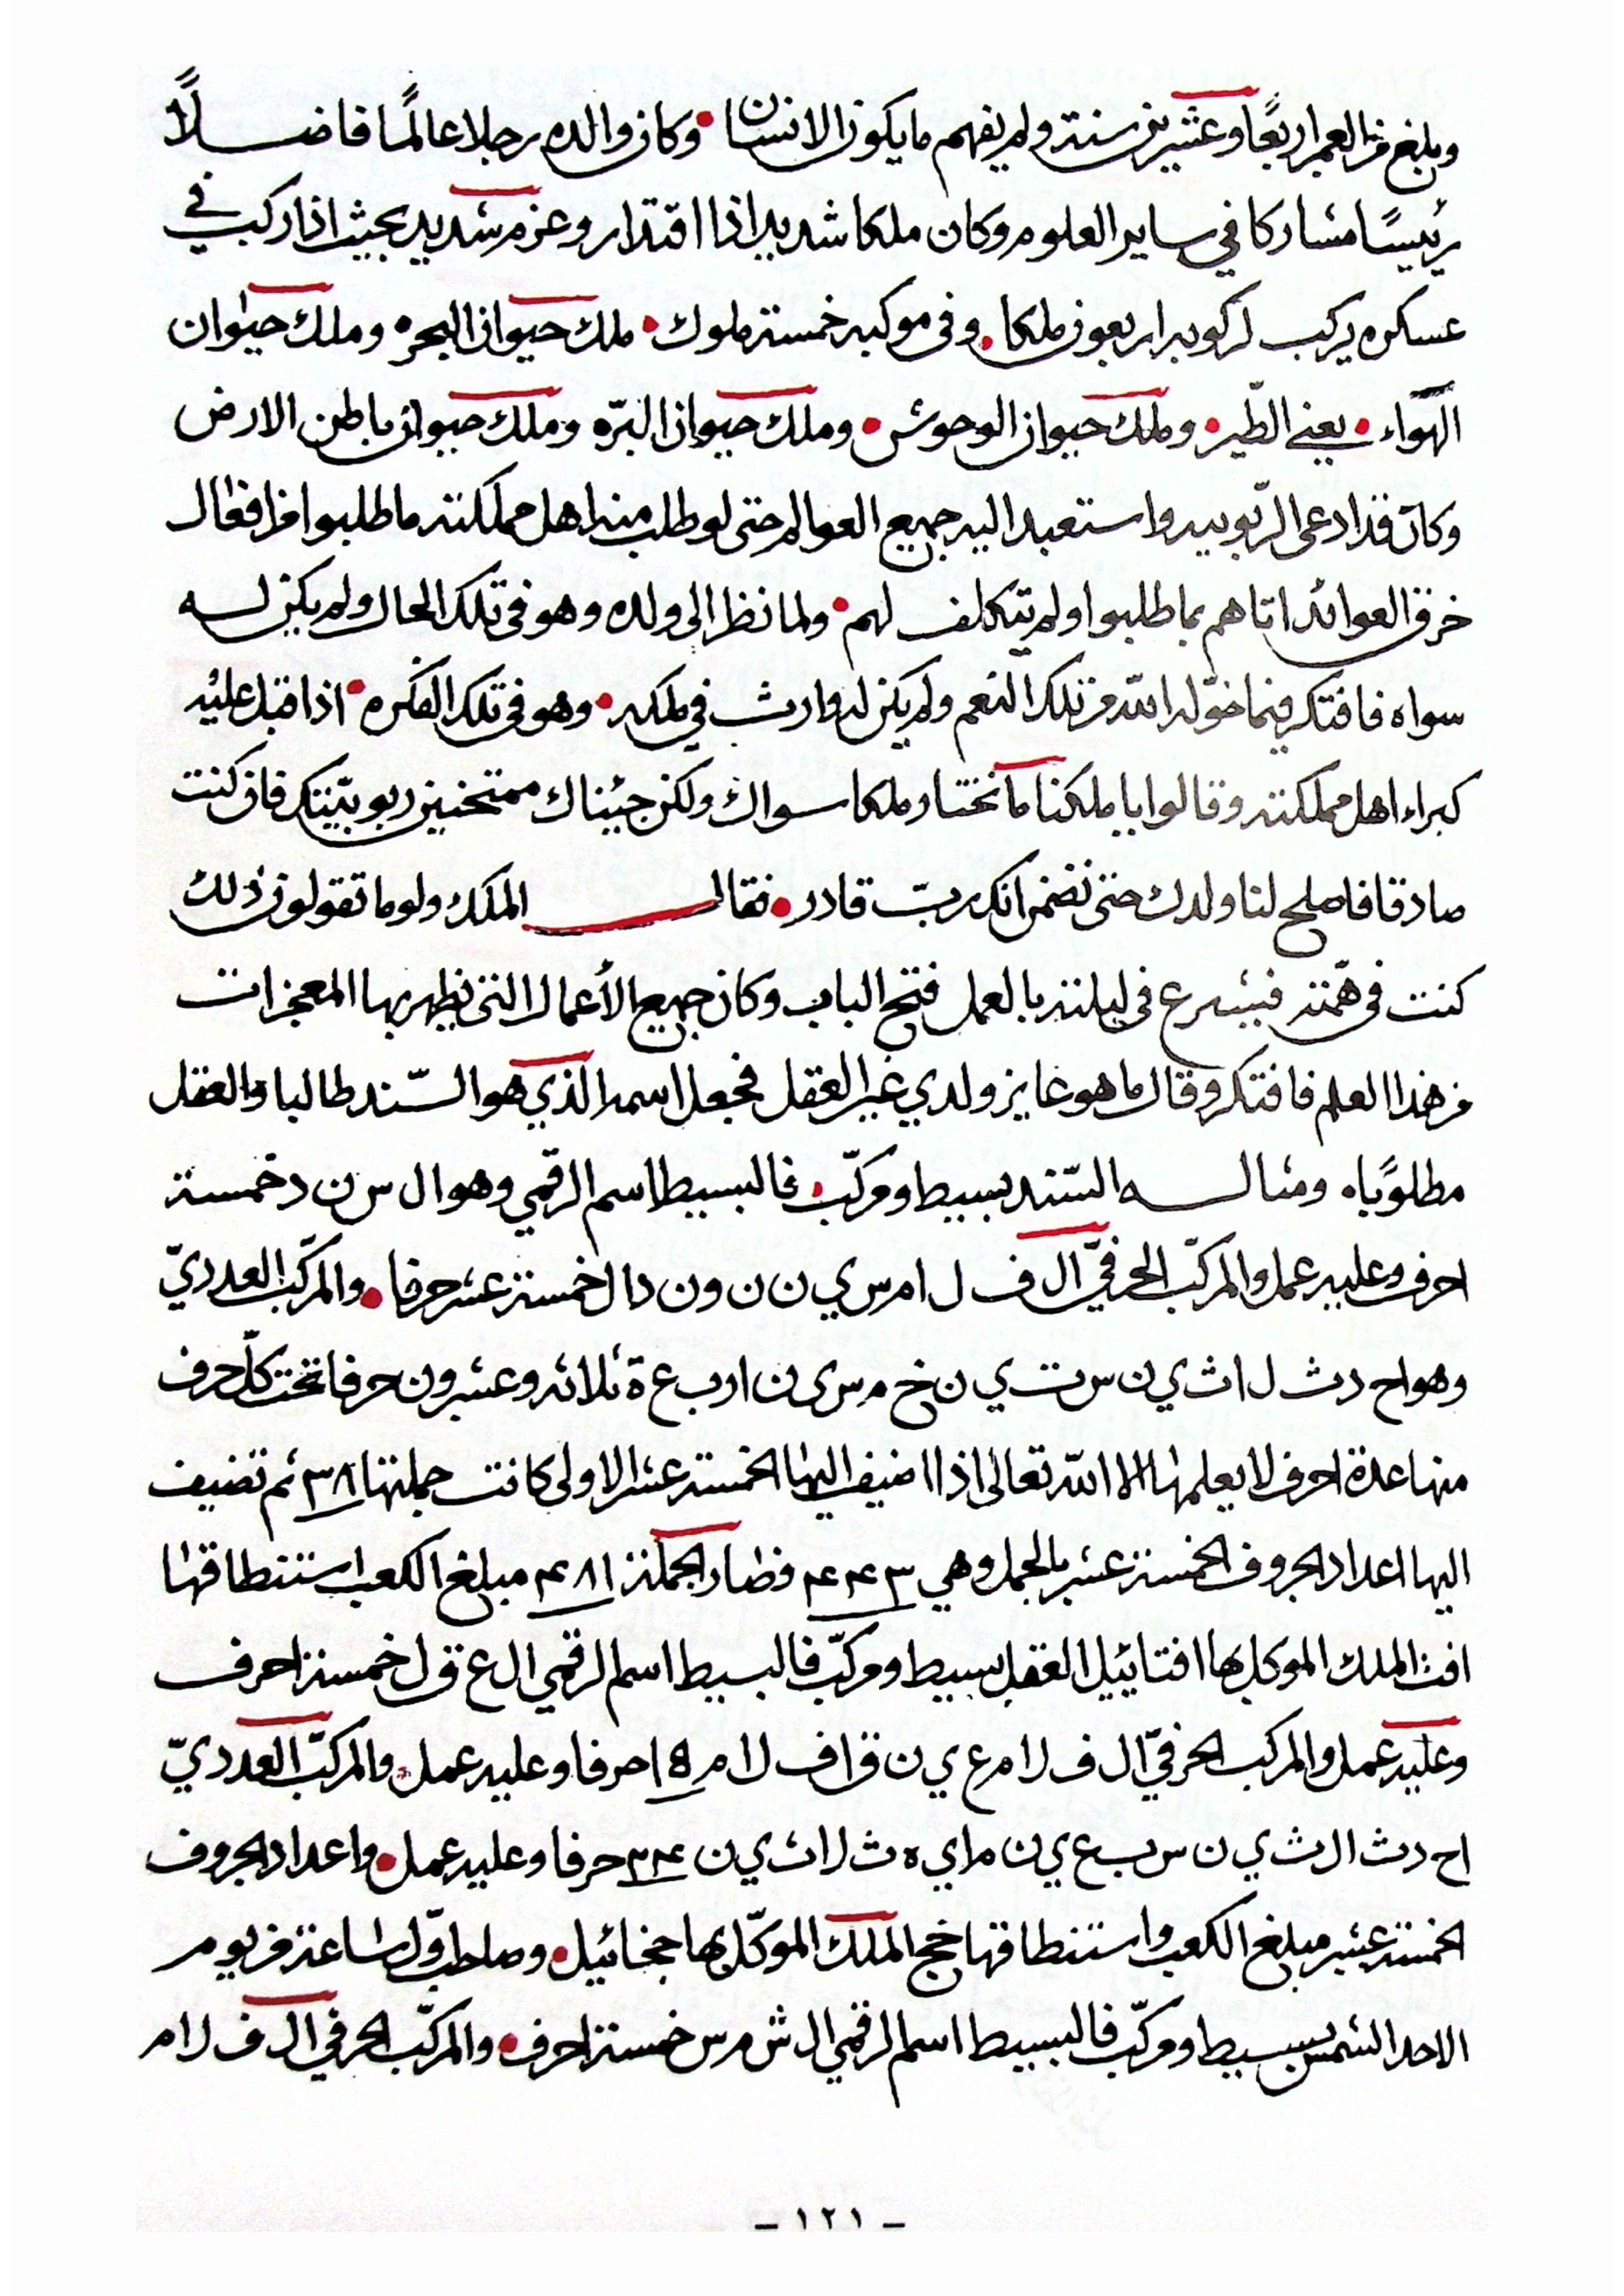 وبلغ من العمر اربعًا وعشرين سنة ولم يفهم ما يكون الانسان • وكان والده رجلا عالمًا فاضلًا
رئيسًا مشاركا في ساير العلوم وكان ملكا شديدا ذا اقتدار وعزم شديد بحيث اذا ركب في
عسكره يركب لركوبه اربعون ملكا • وفى موكبه خمسة ملوك • ملك حيوان البحر وملك حيوان
الهوآء • يعنى الطّير • وملك حيوان الوحوش • وملك حيوان البرّ وملك حيوان باطن الارض
وكان قد ادعى الرّبوبيه واستعبد اليه جميع العوالم حتى لو طلب منه اهل مملكته ما طلبوا من افعال
خرق العوائد اتاهم بما طلبوا ولم يتكلف لهم • ولما نظر الى ولده وهو فى تلك الحال ولم يكن له
سواه فافتكر فيما خوّله الله من تلك النعم ولم يكن له وارث في ملكه • وهو فى تلك الفكره • اذ اقبل عليه
كبراء اهل مملكته وقالوا يا ملكنا ما نختار ملكا سواك ولكن جيئناك ممتحنين ربوبيّتك فان كنت
صادقا فاصلح لنا ولدك حتى نضمن انك ربّ قادر • فقال الملك ولو ما تقولون ذلك
كنت فى همّته فيشرع فى ليلته بالعمل فتح الباب وكان جميع الأعمال التى يظهر بها المعجزات
من هذا العلم فافتكر وقال ما هو عايز ولدي غير العقل فجعل اسمه الذي هو السّند طالبا والعقل
مطلوبًا ومثاله السّند بسيط ومركّب • فالبسيط اسم الرقمي وهو ال س ن د خمسة
احرف وعليه عمل والمركّب الحرفيّ ال ف ل ام س ي ن ن ون دال خمسة عشر حرفا • والمركّب العدديّ
وهو اح د ث ل اث ي ن س ت ي ن خ م س ى ن ارب ع ة ثلاثه وعشرون حرفا تحت كلّ حرف
منها عدة احرف لا يعلمها الا الله تعالى اذا اضيف اليها الخمسة عشر الاولى كانت جملتها ٣٨ ثم تضيف
اليها اعداد الحروف الخمسة عشر بالجمل وهي ٤٤٣ فصار الجملة ٤٨١ مبلغ الكعب استنطاقها
افث الملك الموكل بها افتاييل العقل بسيط ومركّب فالبسيط اسم الرقمي ال ع ق ل خمسة احرف
وعليه عمل والمركب الحرفيّ ال ف ل ام ع ي ن ق اف ل ام ١٥ حرفا وعليه عمل والمركّب العدديّ
اح د ث ال ث ي ن س ب ع ي ن م اي ه ث ل اث ي ن ٢٤ حرفا وعليه عمل • واعداد الحروف
الخمسة عشر مبلغ الكعب واستنطاقها خجج الملك الموكّل بها ججخائيل • وصاحب اوّل ساعة من يوم
الاحد الشمس بسيط ومركّب فالبسيط اسم الرقمي ال ش م س خمسة احرف • والمركّب الحرفي ال ف ل ام
- ١٢١ -